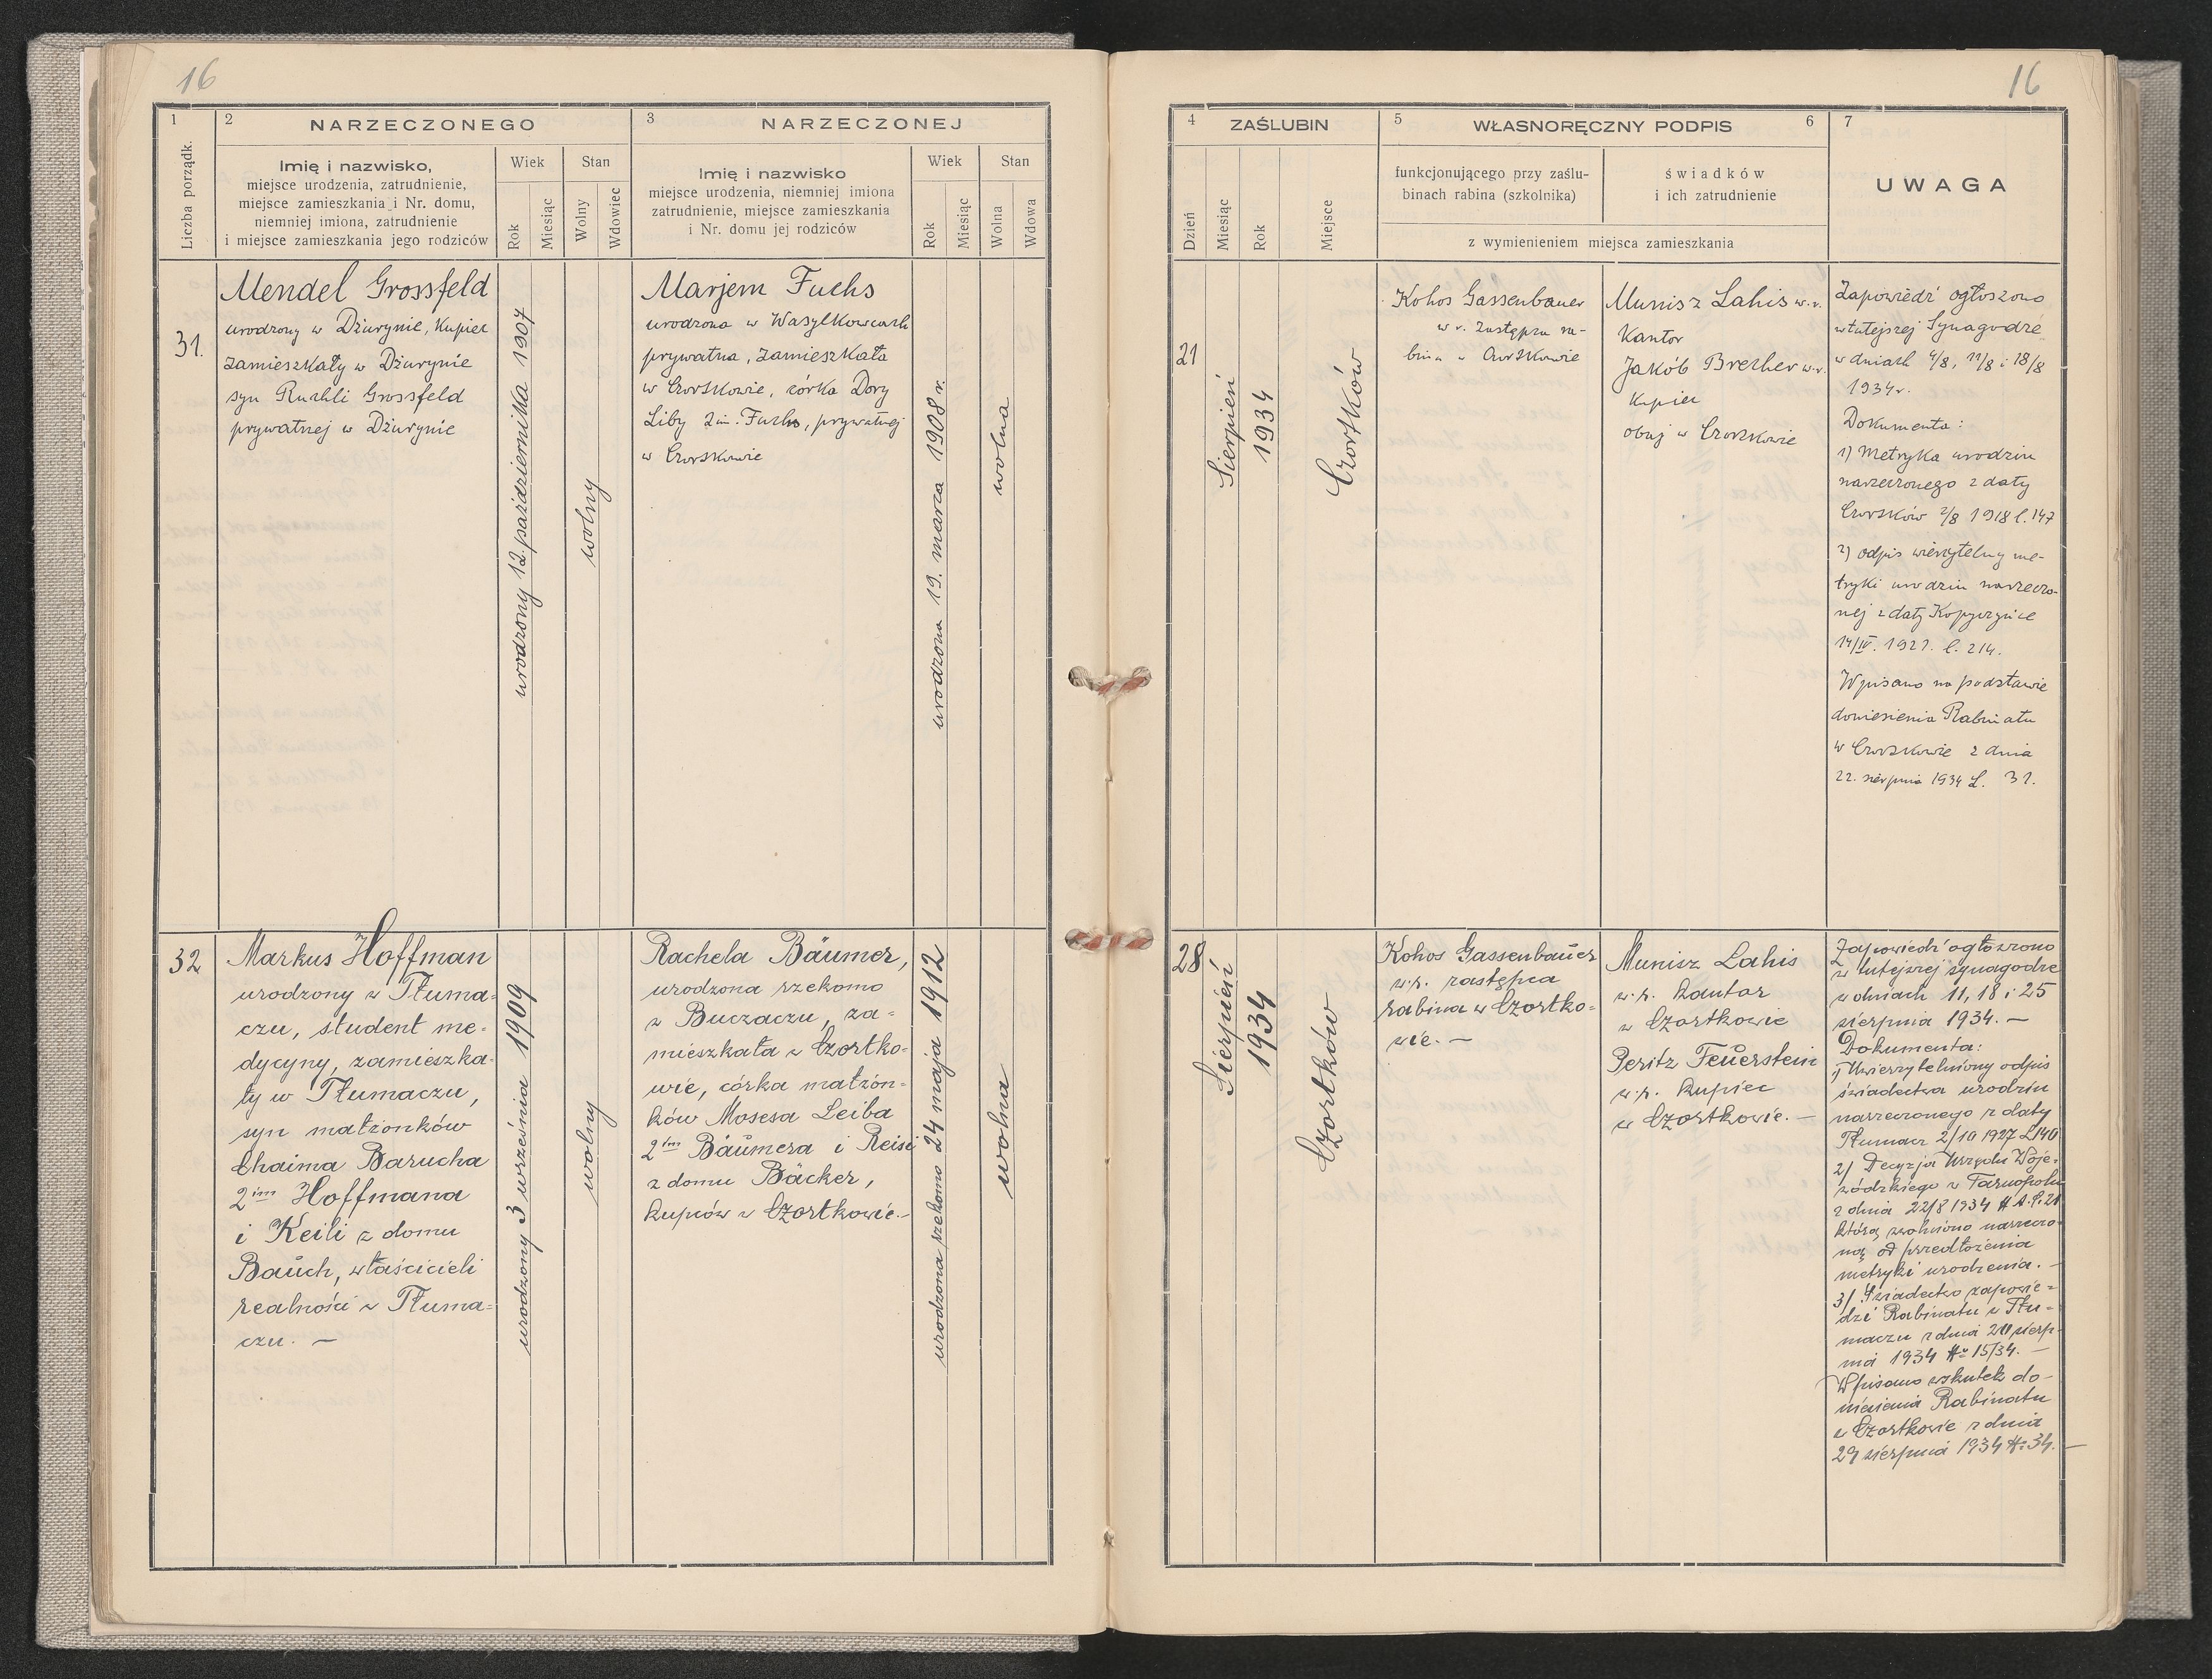 16
1
2
NARZECZONEGO
3
NARZECZONEJ
Liczba porządk.
Imię i nazwisko,
miejsce urodzenia, zatrudnienie,
miejsce zamieszkania i Nr. domu,
niemniej imiona, zatrudnienie
i miejsce zamieszkania jego rodziców
Wiek
Rok
Miesiąc
Stan
Wolny
Wdowiec
Imię i nazwisko
miejsce urodzenia, niemniej imiona
zatrudnienie, miejsce zamieszkania
i Nr. domu jej rodziców
Wiek
Rok
Miesiąc
Stan
Wolna
Wdowa
31.
Mendel Grossfeld
urodzony w Dżurynie, Kupiec
zamieszkały w Dżurynie
syn Ruchli Grossfeld
prywatnej w Dżurynie
urodzony 12. października 1907
wolny
Marjem Fuchs
urodzona w Wasylkowcach
prywatna, zamieszkała
w Czortkowie, córka Dory
Liby 2im. Fuchs, prywatnej
w Czortkowie
urodzona 19. marca 1908 r.
wolna
32
Markus Hoffman
urodzony w Tłuma=
czu, student me=
dycyny, zamieszka=
ły w Tłumaczu,
syn małżonków
Chaima Barucha
2im Hoffmana
i Keili z domu
Bauch, właścicieli
realności w Tłuma=
czu. —
urodzony 3 września 1909
wolny
Rachela Bäumer,
urodzona rzekomo
w Buczaczu, za=
mieszkała w Czortko=
wie, córka małżon=
ków Mosesa Leiba
2im Bäumera i Reisi
z domu Bäcker,
kupców w Czortkowie.-
urodzona rzekomo 24 maja 1912
wolna
16
4
ZAŚLUBIN
5
WŁASNORĘCZNY PODPIS
6
7
Dzień
Miesiąc
Rok
Miejsce
funkcjonującego przy zaślu-
binach rabina (szkolnika)
świadków
i ich zatrudnienie
z wymienieniem miejsca zamieszkania
UWAGA
21
Sierpień
1934
Czortków
Kohos Gassenbauer
w r. Zastępca ra-
bina w Czortkowie
Munisz Lahis w. r.
Kantor
Jakób Brecher w.r.
Kupiec
obaj w Czortkowie
Zapowiedź ogłoszono
w tutejszej Synagodze
w dniach 4/8, 11/8 i 18/8
1934 r.
Dokumenta:
1) Metryka urodzin
narzeczonego z daty
Czortków 2/8 1918 l. 147
2) odpis wierzytelny me-
tryki urodzin narzeczo-
nej z daty Kopyczyńce
14/IV. 1927. l. 214.
Wpisano na podstawie
doniesienia Rabinatu
w Czortkowie z dnia
22. sierpnia 1934 L. 31.
28
Sierpień
1934
Czortków
Kohos Gassenbauer
w.r. zastępca
rabina w Czortko=
wie. —
Munisz Lahis
w.r. kantor
w Czortkowie
Peritz Feuerstein
w.r. kupiec
w Czortkowie. —
Zapowiedź ogłoszono
w tutejszej synagodze
w dniach 11, 18 i 25
sierpnia 1934. —
Dokumenta:
1) Uwierzytelniony odpis
świadectwa urodzin
narzeczonego z daty
Tłumacz 2/10 1927 L140
2) Decyzja Urzędu Woje-
wódzkiego w Tarnopolu
z dnia 22/8 1934
którą zwolniono narzeczo-
ną od przedłożenia
metryki urodzenia. —
3) Świadectwo zapowie=
dzi Rabinatu w Tłu=
maczu z dnia sierp-
nia 1934 № 15/34. —
Wpisano wskutek do-
niesienia Rabinatu
w Czortkowie z dnia
29 sierpnia 1934 №: 34. —